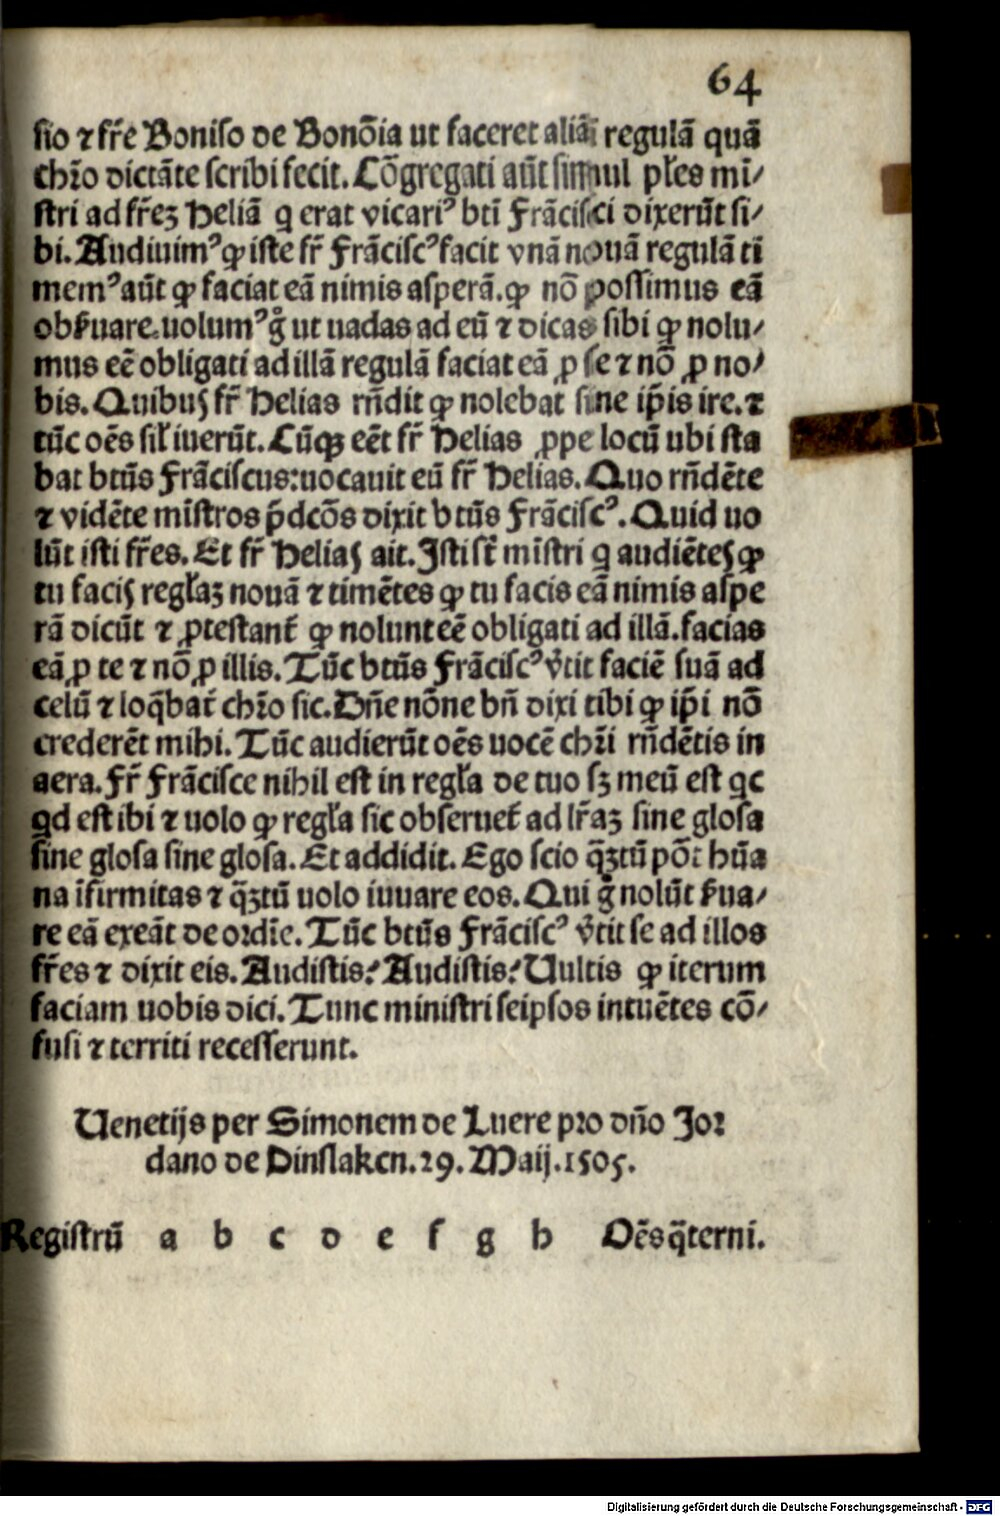 64
sio ⁊ fr̄e Boniso de Bonōia ut faceret aliā regulā quā
chr̄o dictāte scribi fecit. Cōgregati aūt simul pl̄es mi/
stri ad fr̄eꝫ Heliā q̄ erat vicariꝰ bt̄i Frācisci dixerūt si/
bi. Audiuimꝰ ꝙ iste fr̄ Frāciscꝰ facit vnā nouā regulā ti
memꝰ aūt ꝙ faciat eā nimis asperā. ꝙ nō possimus eā
obſ̄uare. uolumꝰ g̊ ut uadas ad eū ⁊ dicas sibi ꝙ nolu/
mus eē obligati ad illā regulā faciat eā ꝓ se ⁊ nō ꝓ no/
bis. Quibus fr̄ Helias rn̄dit ꝙ nolebat sine ip̄is ire. ⁊
tūc oēs sil̄ iuerūt. Cūqꝫ eēt fr̄ Helias ꝓpe locū ubi sta
bat btūs Frāciscus: uocauit eū fr̄ Helias. Quo rn̄dēte
⁊ vidēte mīstros p̄dcōs dixit btūs Frāciscꝰ. Quid uo
lūt isti fr̄es. Et fr̄ Helias ait. Isti st̄ mīstri q̄ audiētes ꝙ
tu facis regl̄aꝫ nouā ⁊ timētes ꝙ tu facis eā nimis aspe
rā dicūt ⁊ ꝓtestant̄ ꝙ nolunt eē obligati ad illā. facias
eā ꝓ te ⁊ nō ꝓ illis. Tūc btūs Frāciscꝰ v̄tit faciē suā ad
celū ⁊ loq̄bat̄ chr̄o sic. Dn̄e nōne bn̄ dixi tibi ꝙ ip̄i nō
crederēt mihi. Tūc audierūt oēs uocē chr̄i rn̄dētis in
aera. Fr̄ Frācisce nihil est in regl̄a de tuo sꝫ meū est qc
qd est ibi ⁊ uolo ꝙ regl̄a sic obseruet̄ ad lr̄aꝫ sine glosa
sine glosa sine glosa. Et addidit. Ego scio q̄ꝫtū pōt hūa
na īfirmitas ⁊ q̄ꝫtū uolo iuuare eos. Qui g̊ nolūt ſ̄ua/
re eā exeāt de ordīe. Tūc btūs Frāciscꝰ v̄tit se ad illos
fr̄es ⁊ dixit eis. Audistis? Audistis? Uultis ꝙ iterum
faciam uobis dici. Tunc ministri seipsos intuētes cō/
fusi ⁊ territi recesserunt.
Uenetijs per Simonem de Luere pro dn̄o Jor
dano de Dinslaken. 29. Maij. 1505.
Registrū a b c d e f g h Oēs q̄terni.
Digitalisierung gefördert durch die Deutsche Forschungsgemeinschaft - DFG